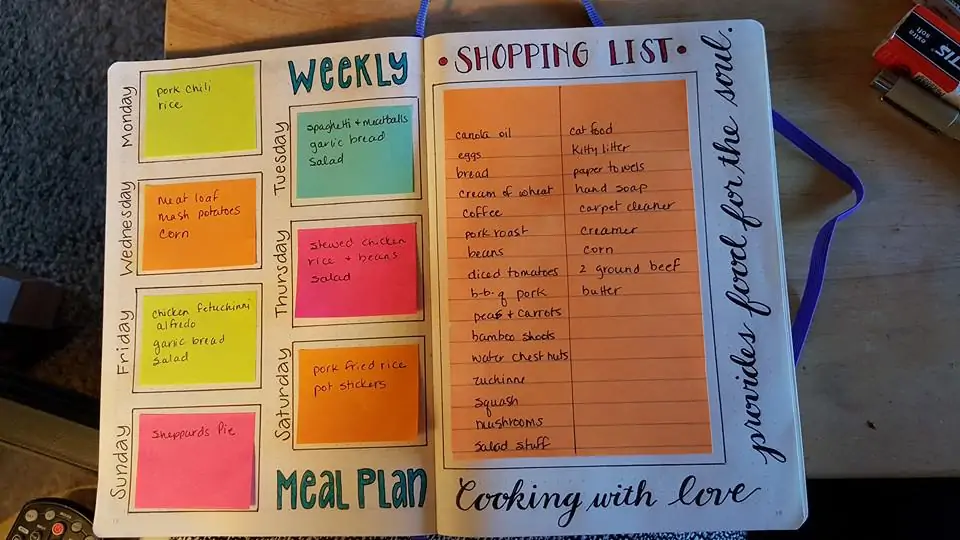 WEEKLY
Monday
pork chili
rice
Tuesday
spaghetti + meatballs
garlic bread
salad
Wednesday
meat loaf
mash potatoes
corn
Thursday
stewed chicken
rice + beans
salad
Friday
chicken fetuchinni
alfredo
garlic bread
salad
Saturday
pork fried rice
pot stickers
Sunday
Sheppards Pie
MEAL PLAN
• SHOPPING LIST •
canola oil
eggs
bread
cream of wheat
coffee
pork roast
beans
diced tomatoes
b-b-q pork
peas + carrots
bamboo shoots
water chestnuts
zuchinni
squash
mushrooms
salad stuff
cat food
kitty litter
paper towels
hand soap
carpet cleaner
creamer
corn
2 ground beef
butter
Cooking with love
provides food for the soul.
extra
soft